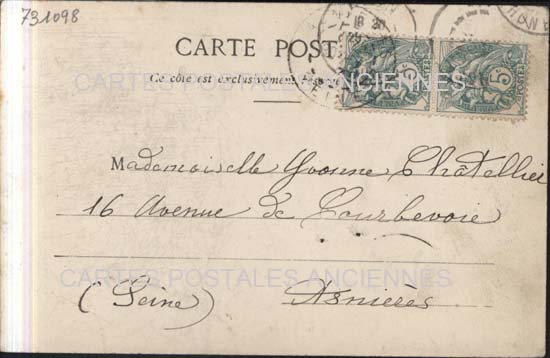 731098
CARTE POST
Ce côté est exclusivement
CARTES POSTALES ANCIENNES
5 5
POSTES
Mademoiselle Yvonne Chatellier
16 Avenue de Courbevoie
CARTES POSTALES ANCIENNES
(Seine) Asnières